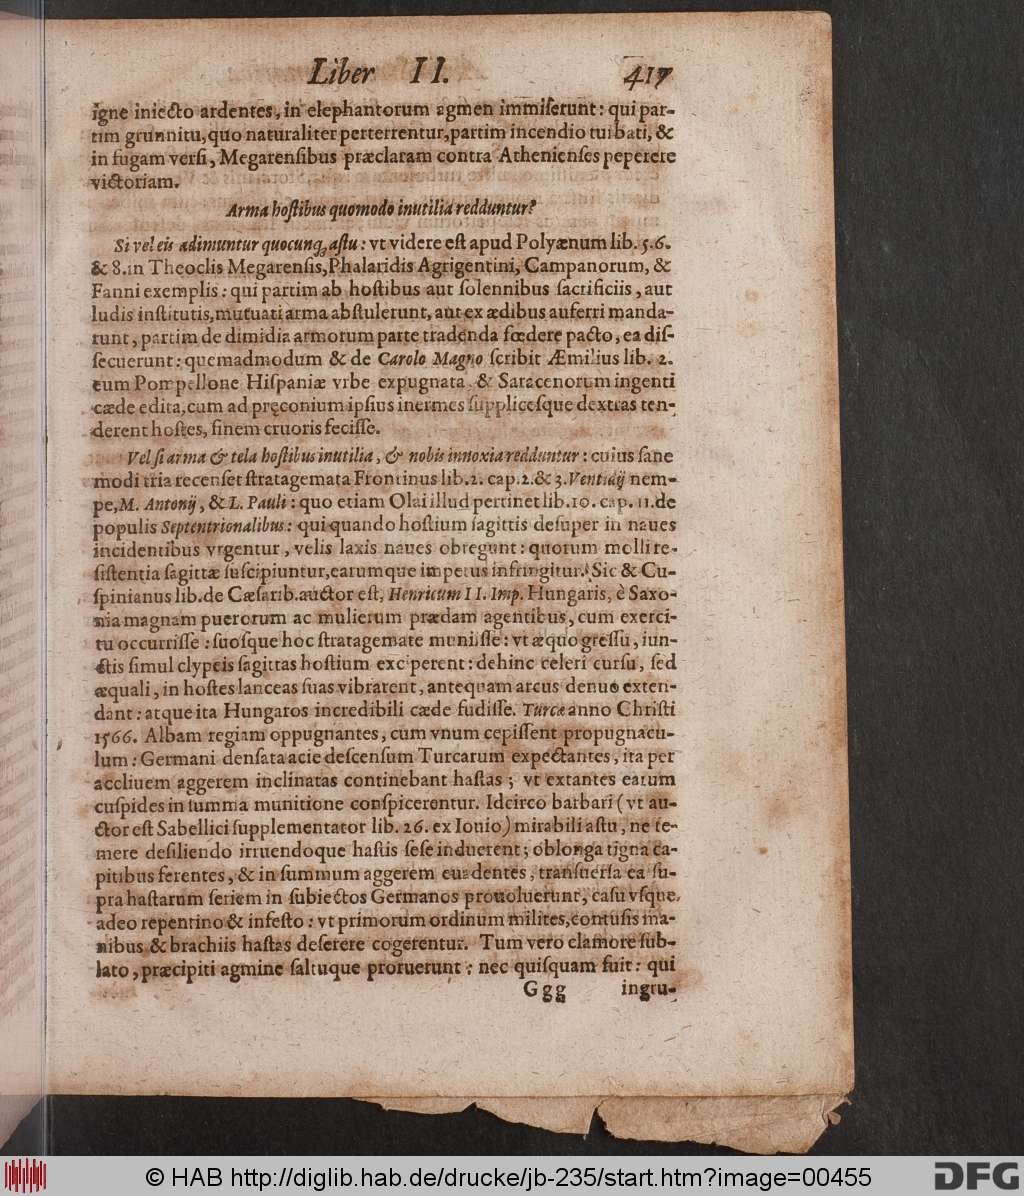 Liber II. 417
igne iniecto ardentes, in elephantorum agmen immiſerunt: qui par-
tim grunnitu, quo naturaliter perterrentur, partim incendio turbati, &
in fugam verſi, Megarenſibus præclaram contra Athenienſes peperere
victoriam.
Arma hoſtibus quomodo inutilia redduntur?
Si vel eis adimuntur quocunq; aſtu: vt videre eſt apud Polyænum lib. 5.6.
& 8. in Theoclis Megarenſis, Phalaridis Agrigentini, Campanorum, &
Fanni exemplis: qui partim ab hoſtibus aut ſolennibus ſacrificiis, aut
ludis inſtitutis, mutuati arma abſtulerunt, aut ex ædibus auferri manda-
runt, partim de dimidia armorum parte tradenda fœdere pacto, ea diſ-
ſecuerunt: quemadmodum & de Carolo Magno ſcribit Æmilius lib. 2.
eum Pompellone Hiſpaniæ vrbe expugnata, & Saracenorum ingenti
cæde edita, cum ad pręconium ipſius inermes ſupplicesque dextras ten-
derent hoſtes, finem cruoris feciſſe.
Vel ſi arma & tela hoſtibus inutilia, & nobis innoxia redduntur: cuius ſane
modi tria recenſet ſtratagemata Frontinus lib. 2. cap. 2. & 3. Ventidij nem-
pe, M. Antonij, & L. Pauli: quo etiam Olai illud pertinet lib. 10. cap. 11. de
populis Septentrionalibus: qui quando hoſtium ſagittis deſuper in naues
incidentibus vrgentur, velis laxis naues obtegunt: quorum molli re-
ſiſtentia ſagittæ ſuſcipiuntur, earumque impetus infringitur. Sic & Cu-
ſpinianus lib. de Cæſarib. auctor eſt, Henricum II. Imp. Hungaris, è Saxo-
nia magnam puerorum ac mulierum prædam agentibus, cum exerci-
tu occurriſſe: ſuoſque hoc ſtratagemate muniiſſe: vt æquo greſſu, iun-
ctis ſimul clypeis ſagittas hoſtium exciperent: dehinc celeri curſu, ſed
æquali, in hoſtes lanceas ſuas vibrarent, antequam arcus denuo exten-
dant: atque ita Hungaros incredibili cæde fudiſſe. Turcæ anno Chriſti
1566. Albam regiam oppugnantes, cum vnum cepiſſent propugnacu-
lum: Germani denſata acie deſcenſum Turcarum expectantes, ita per
accliuem aggerem inclinatas continebant haſtas; vt extantes earum
cuſpides in ſumma munitione conſpicerentur. Idcirco barbari (vt au-
ctor eſt Sabellici ſupplementator lib. 26. ex Iouio) mirabili aſtu, ne te-
mere deſiliendo irruendoque haſtis ſeſe induerent; oblonga tigna ca-
pitibus ferentes, & in ſummum aggerem euadentes, tranſuerſa ea ſu-
pra haſtarum ſeriem in ſubiectos Germanos prouoluerunt, caſu vſque
adeo repentino & infeſto: vt primorum ordinum milites, contuſis ma-
nibus & brachiis haſtas deſerere cogerentur. Tum vero clamore ſub-
lato, præcipiti agmine ſaltuque proruerunt: nec quiſquam fuit: qui
Ggg ingru-
© HAB http://diglib.hab.de/drucke/jb-235/start.htm?image=00455 DFG